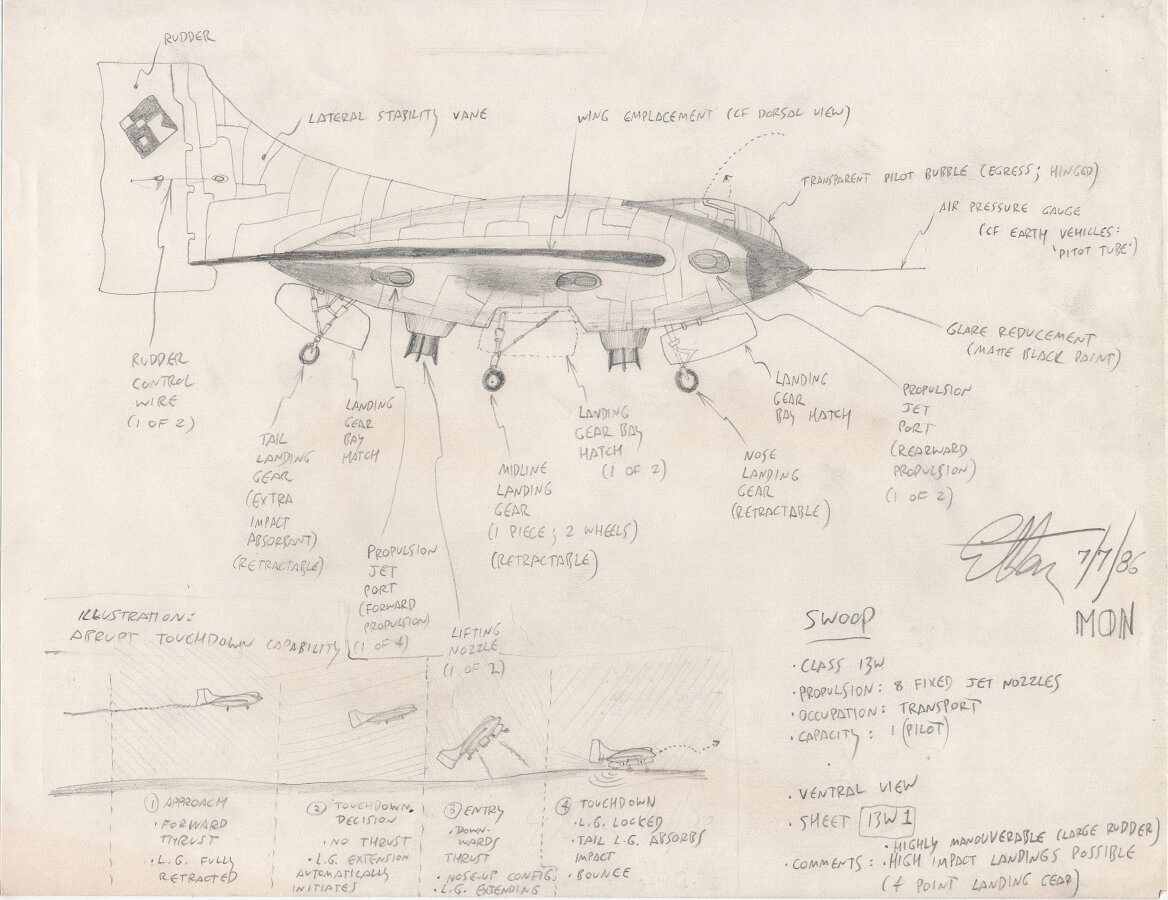 RUDDER
LATERAL STABILITY VANE
WING EMPLACEMENT (CF DORSAL VIEW)
TRANSPARENT PILOT BUBBLE (EGRESS; HINGED)
AIR PRESSURE GAUGE
(CF EARTH VEHICLES:
'PITOT TUBE')
GLARE REDUCEMENT
(MATTE BLACK PAINT)
RUDDER
CONTROL
WIRE
(1 OF 2)
TAIL
LANDING
GEAR
(EXTRA
IMPACT
ABSORBANT)
(RETRACTABLE)
LANDING
GEAR
BAY
HATCH
PROPULSION
JET
PORT
(FORWARD
PROPULSION)
(1 OF 4)
LIFTING
NOZZLE
(1 OF 2)
MIDLINE
LANDING
GEAR
(1 PIECE; 2 WHEELS)
(RETRACTABLE)
LANDING
GEAR BAY
HATCH
(1 OF 2)
NOSE
LANDING
GEAR
(RETRACTABLE)
LANDING
GEAR
BAY HATCH
PROPULSION
JET
PORT
(REARWARD
PROPULSION)
(1 OF 2)
7/7/86
MON
ILLUSTRATION:
ABRUPT TOUCHDOWN CAPABILITY
① APPROACH
• FORWARD
THRUST
• L.G. FULLY
RETRACTED
② TOUCHDOWN
DECISION
• NO THRUST
• L.G. EXTENSION
AUTOMATICALLY
INITIATES
③ ENTRY
• DOWN-
WARDS
THRUST
• NOSE-UP CONFIG.
• L.G. EXTENDING
④ TOUCHDOWN
• L.G. LOCKED
• TAIL L.G. ABSORBS
IMPACT
• BOUNCE
SWOOP
• CLASS 13W
• PROPULSION: 8 FIXED JET NOZZLES
• OCCUPATION: TRANSPORT
• CAPACITY: 1 (PILOT)
• VENTRAL VIEW
• SHEET 13W1
• HIGHLY MANOUVERABLE (LARGE RUDDER)
• COMMENTS: • HIGH IMPACT LANDINGS POSSIBLE
(4 POINT LANDING GEAR)